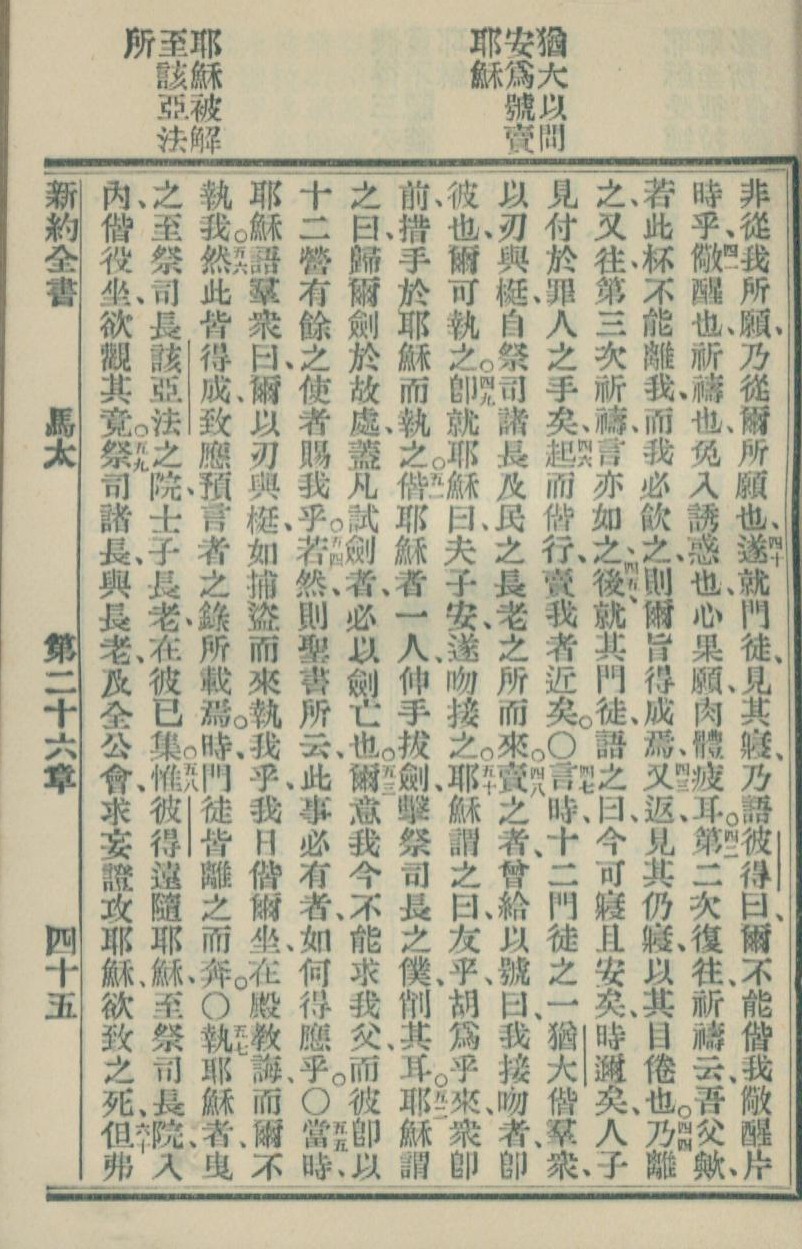 猶大以問
安爲號賣
耶穌
耶穌被解
至該亞法
所
非從我所願、乃從爾所願也、四十遂就門徒、見其寢、乃語彼得曰、爾不能偕我儆醒片
時乎、四一儆醒也、祈禱也、免入誘惑也、心果願、肉體疲耳。四二第二次復往、祈禱云、吾父歟、
若此杯不能離我、而我必飲之、則爾旨得成焉、四三又返、見其仍寢、以其目倦也。四四乃離
之、又往、第三次祈禱、言亦如之、四五後就其門徒、語之曰、今可寢且安矣、時邇矣、人子
見付於罪人之手矣、四六起而偕行、賣我者近矣。〇四七言時、十二門徒之一猶大偕羣衆、
以刃與梃、自祭司諸長及民之長老之所而來。四八賣之者、曾給以號曰、我接吻者卽
彼也、爾可執之。四九卽就耶穌曰、夫子安、遂吻接之。五十耶穌謂之曰、友乎、胡爲乎來、衆卽
前、措手於耶穌而執之。五一偕耶穌者一人、伸手拔劍、擊祭司長之僕、削其耳。五二耶穌謂
之曰、歸爾劍於故處、蓋凡試劍者、必以劍亡也。五三爾意我今不能求我父、而彼卽以
十二營有餘之使者賜我乎。五四若然、則聖書所云、此事必有者、如何得應乎。〇五五當時、
耶穌語羣衆曰、爾以刃與梃、如捕盜而來執我乎、我日偕爾坐、在殿教誨、而爾不
執我。五六然此皆得成、致應預言者之錄所載焉。時、門徒皆離之而奔。〇五七執耶穌者、曳
之至祭司長該亞法之院、士子長老、在彼已集。五八惟彼得遠隨耶穌、至祭司長院、入
內、偕役坐、欲觀其竟。五九祭司諸長、與長老、及全公會、求妄證攻耶穌、欲致之死、六十但弗
新約全書　馬太　第二十六章　四十五